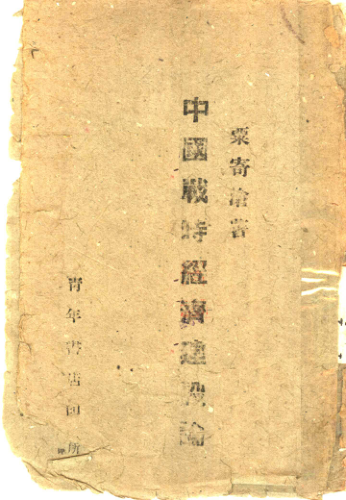 粟寄滄著
中國戰時經濟建設論
青年書店印所